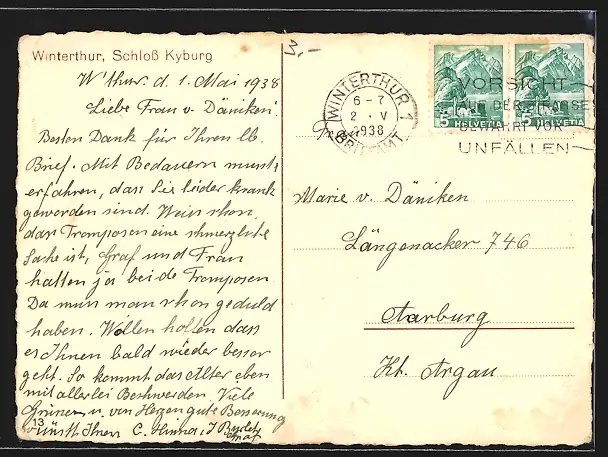 Winterthur, Schloß Kyburg
W'thur. d. 1. Mai 1938
Liebe Frau v. Däniken!
Besten Dank für Ihren lb.
Brief. Mit Bedauern musst
erfahren, dass Sie leider krank
geworden sind. Weis schon,
dass Tromposen eine schmerzliche
Sache ist, Graf und Frau
hatten ja beide Tromposen
Da muss man schon geduld
haben. Wollen hoffen dass
es Ihnen bald wieder besser
geht. So kommt das Alter eben
mit allerlei Beschwerden. Viele
Grüsse u. von Herzen gute Besserung
wünscht Ihnen C.
13
WINTERTHUR 1
6-7
2·V
1938
BRIEFAMT
VORSICHT
AUF DER STRASSE
BEWAHRT VOR
UNFÄLLEN
5 HELVETIA
5 HELVETIA
Frau
Marie v. Däniken
Längenacker 746
Aarburg
Kt. Argau